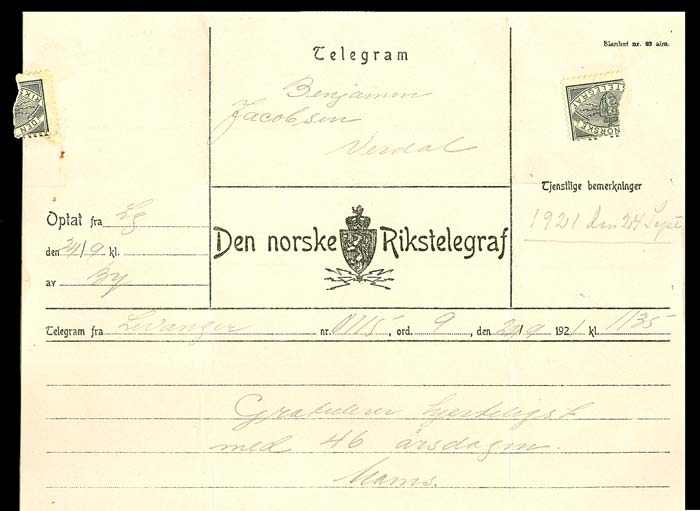 Blanket nr. 23 alm.
Telegram
Benjamen
Jacobsen
Verdal
DEN
RIK
TELEGRAF
NORSKE
Tjenstlige bemerkninger
1921 den 24 Sept
Optat fra Lg
den 24/9 kl.
av By
Den norske Rikstelegraf
Telegram fra Levanger nr. 0115, ord. 9, den 24/9 1921 kl. 1135
Gratulerer hjerteligst
med 46 årsdagen